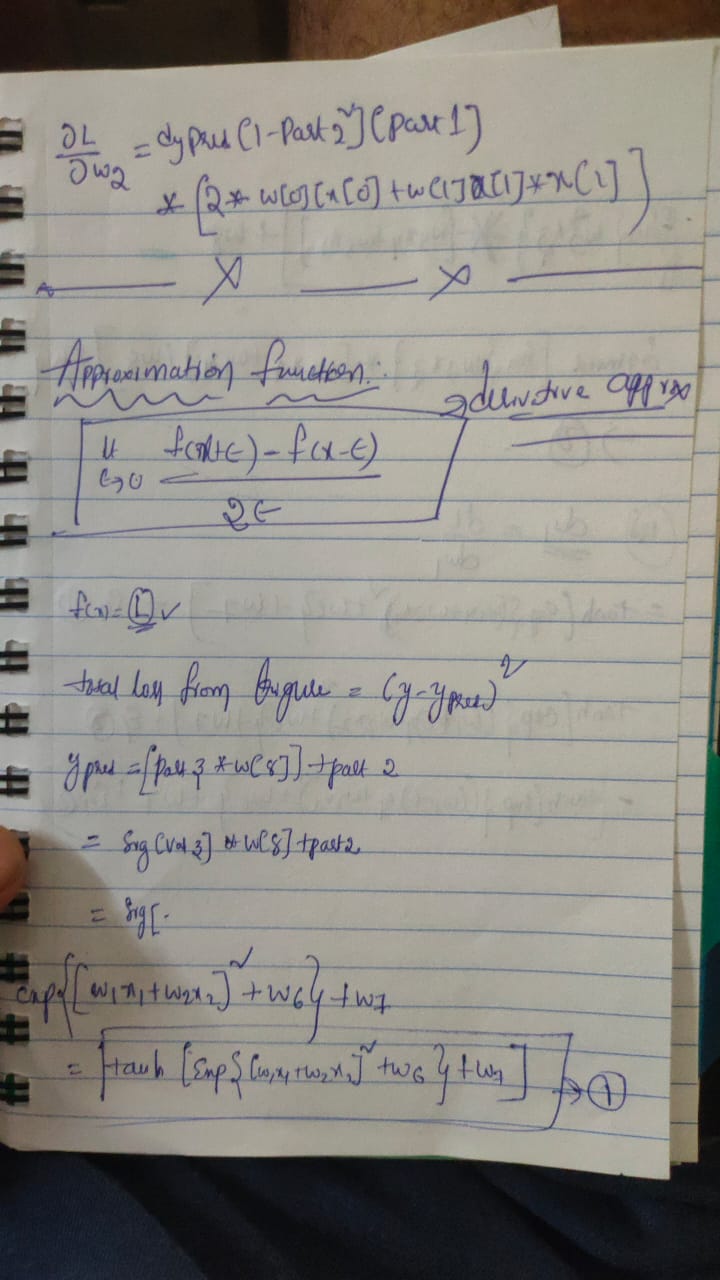 ∂L/∂w2 = dypred (1-Part 2²] (part 1]
* [2 * w[0] (x[0] + w[1] x[1] * x[1]]
X X
Approximation function:
→ derivative approx
lt ε→0 f(x+ε) - f(x-ε) / 2ε
f(x) = L ✓
total loss from figure = (y-ypred)²
ypred = [Part 3 * w[8]] + part 2
= Sig (Val 3] * w[8] + part 2
= Sig [.
exp{[w1x1+w2x2]² + w6} + w7
= tanh [Exp{(w1x1+w2x2]² + w6} + w7] → 1